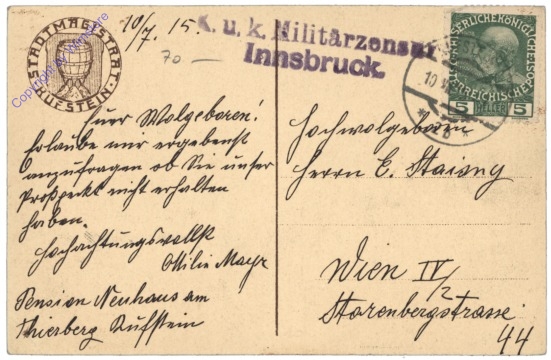 10/7. 15.
70 —
STADTMAGISTRAT
KUFSTEIN
K. u. k. Militärzensur
Innsbruck.
KAISERLICHE KÖNIGLICHE
ÖSTERREICHISCHE
5 5
Euer Wolgeboren!
Erlaube mir ergebenst
anzufragen ob Sie unser
Prospekt nicht erhalten
haben.
Hochachtungsvollst
Ottilie Mayr
Pension Neuhaus am
Thierberg Kufstein
Hochwolgeboren
Herrn C.
Wien IV/2
Starenbergstrasse
44